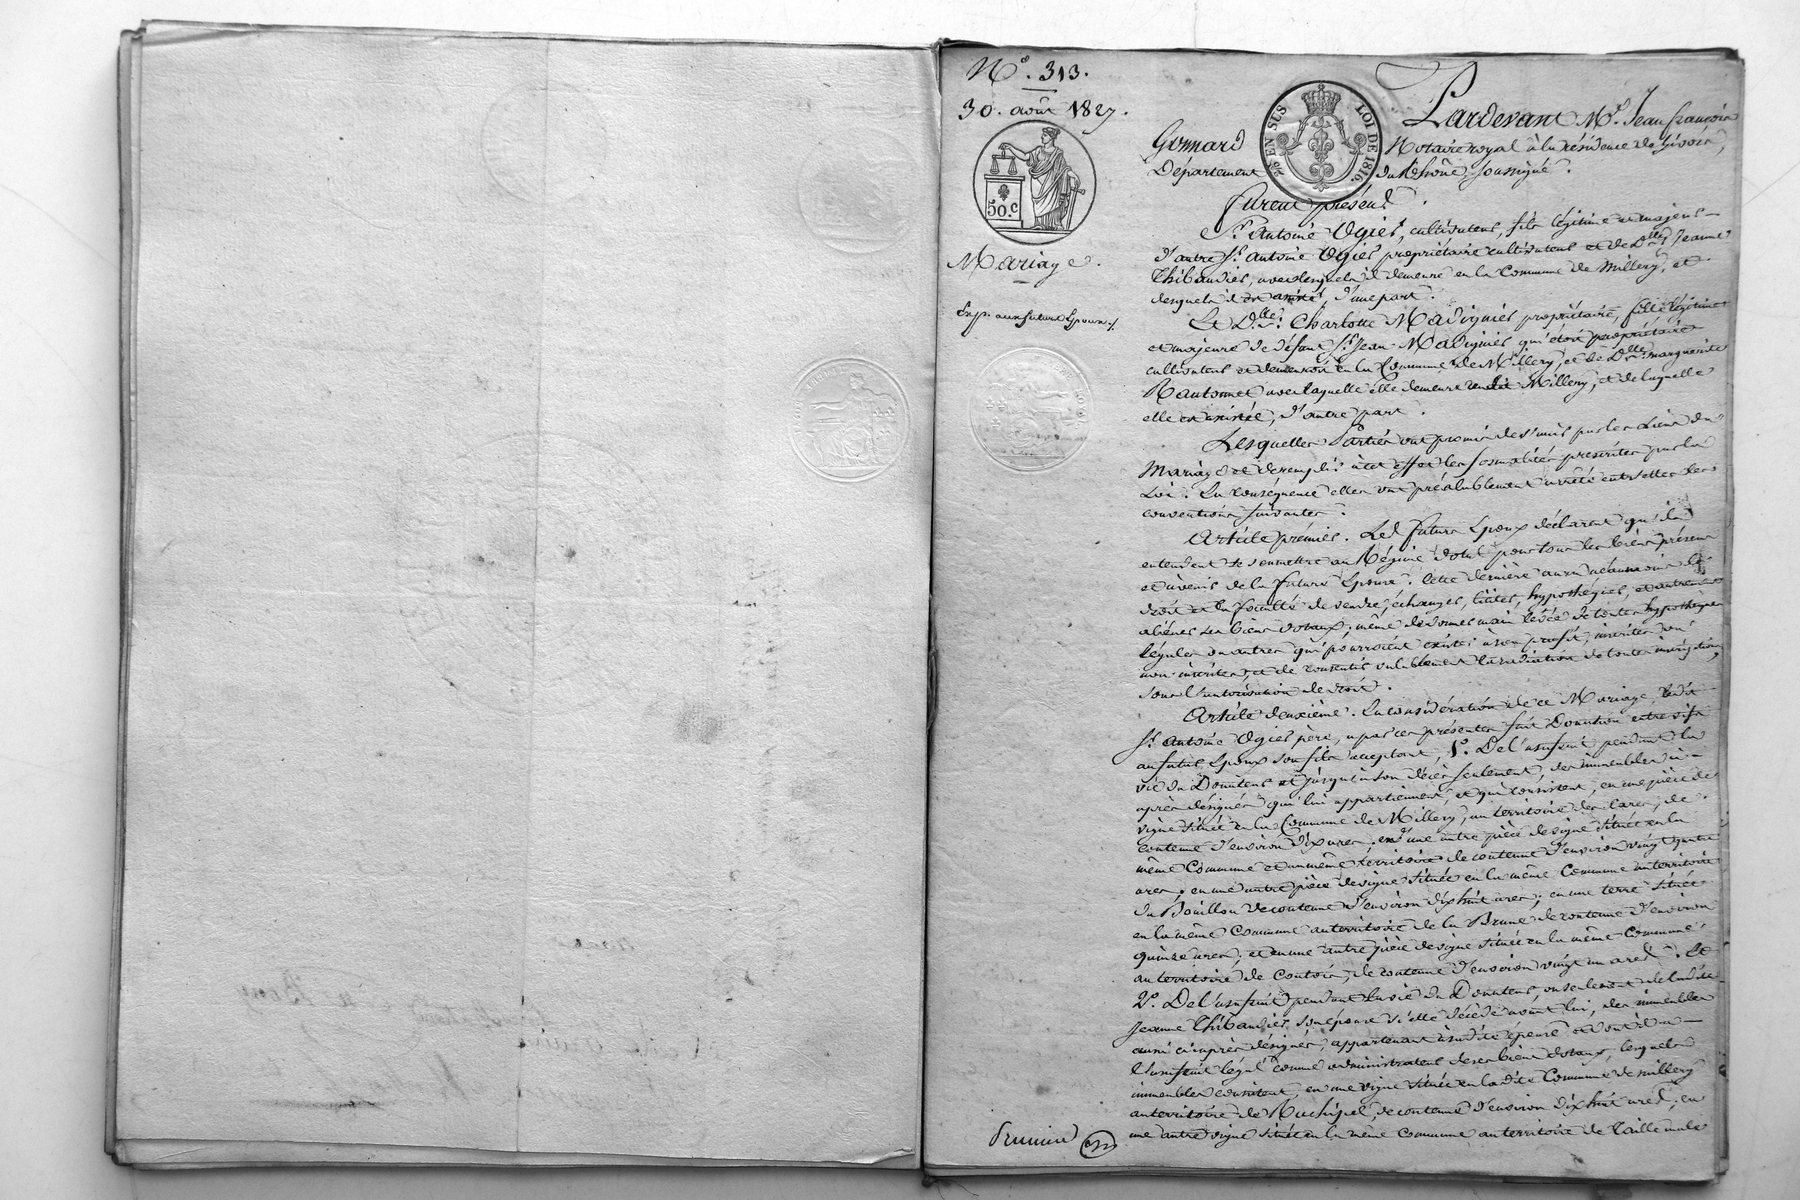 N.° 313.
30. août 1827.
50.c
Mariage.
Exp. aux futurs Epoux ./.
25 EN SUS
LOI DE 1816.
Pardevant M.e Jean françois
Gonnard Notaire royal à la résidence de Givors,
Département du Rhône, soussigné.
Furent présens
S.r Antoine Ogier, cultivateur, fils légitime et majeur
d'autre S.r Antoine Ogier propriétaire cultivateur et de D.lle Jeanne
Thibaudier, avec lesquels il demeure en la Commune de Millery, et
desquels il est assisté, d'une part.
Et D.lle Charlotte Madignier propriétaire, fille légitime
et majeure de défunt S.r Jean Madignier qui étoit propriétaire
cultivateur et demeuroit en la Commune de Millery, et de D.lle marguerite
avec laquelle elle demeure audit Millery, et de laquelle
elle est assistée, d'autre part.
Lesquelles Parties ont promis de s'unir par les Liens du
Mariage et de remplir à cet effet les formalités prescrites par la
Loi. En conséquence elles ont préalablement arrêté entr'elles les
conventions suivantes.
Article prémier. Les futurs Epoux déclarent qu'ils
entendent se soumettre au Régime dotal pour tous les biens présens
et à venir de la future Epouse. Cette dernière aura néanmoins le
droit et la faculté de vendre, échanger, liciter, hypothéquer, et autrement
aliéner ses biens dotaux; même de donner main levée de toutes hypothèques
légales ou autres qui pourroient exister à son profit, inscrites ou
non inscrites, et de consentir valablement la radiation de toutes inscriptions,
sous l'autorisation de droit.
Article deuxième. En considération de ce Mariage, ledit
S.r Antoine Ogier père, a par ces présentes fait Donation entre vifs
au futur Epoux son fils acceptant, 1.° De l'usufruit pendant la
vie du Donateur et jusqu'à son décès seulement, des immeubles ci-
après désignés qui lui appartiennent, et qui consistent, en une pièce de
vigne située en la Commune de Millery, au territoire des, de
contenue d'environ dix ares; en une autre pièce de vigne située en la
même Commune et au même territoire de contenue d'environ vingt quatre
ares; en une autre pièce de vigne située en la même Commune au territoire
du Bouillon de contenue d'environ dix huit ares; en une terre située
en la même Commune au territoire de la Brune de contenue d'environ
quinze ares; et en une autre pièce de vigne située en la même Commune
au territoire de, de contenue d'environ vingt un ares. Et
2.° De l'usufruit pendant la vie du Donateur, ou seulement de ladite
Jeanne Thibaudier son épouse si elle décède avant lui, des immeubles
aussi ci-après désignés, appartenant à sadite épouse et dont il a
l'usufruit légal comme administrateur de ses biens dotaux, lesquels
immeubles consistent, en une vigne située en ladite Commune de Millery
au territoire de, de contenue d'environ dix huit ares; en
une autre vigne située en la même Commune au territoire de